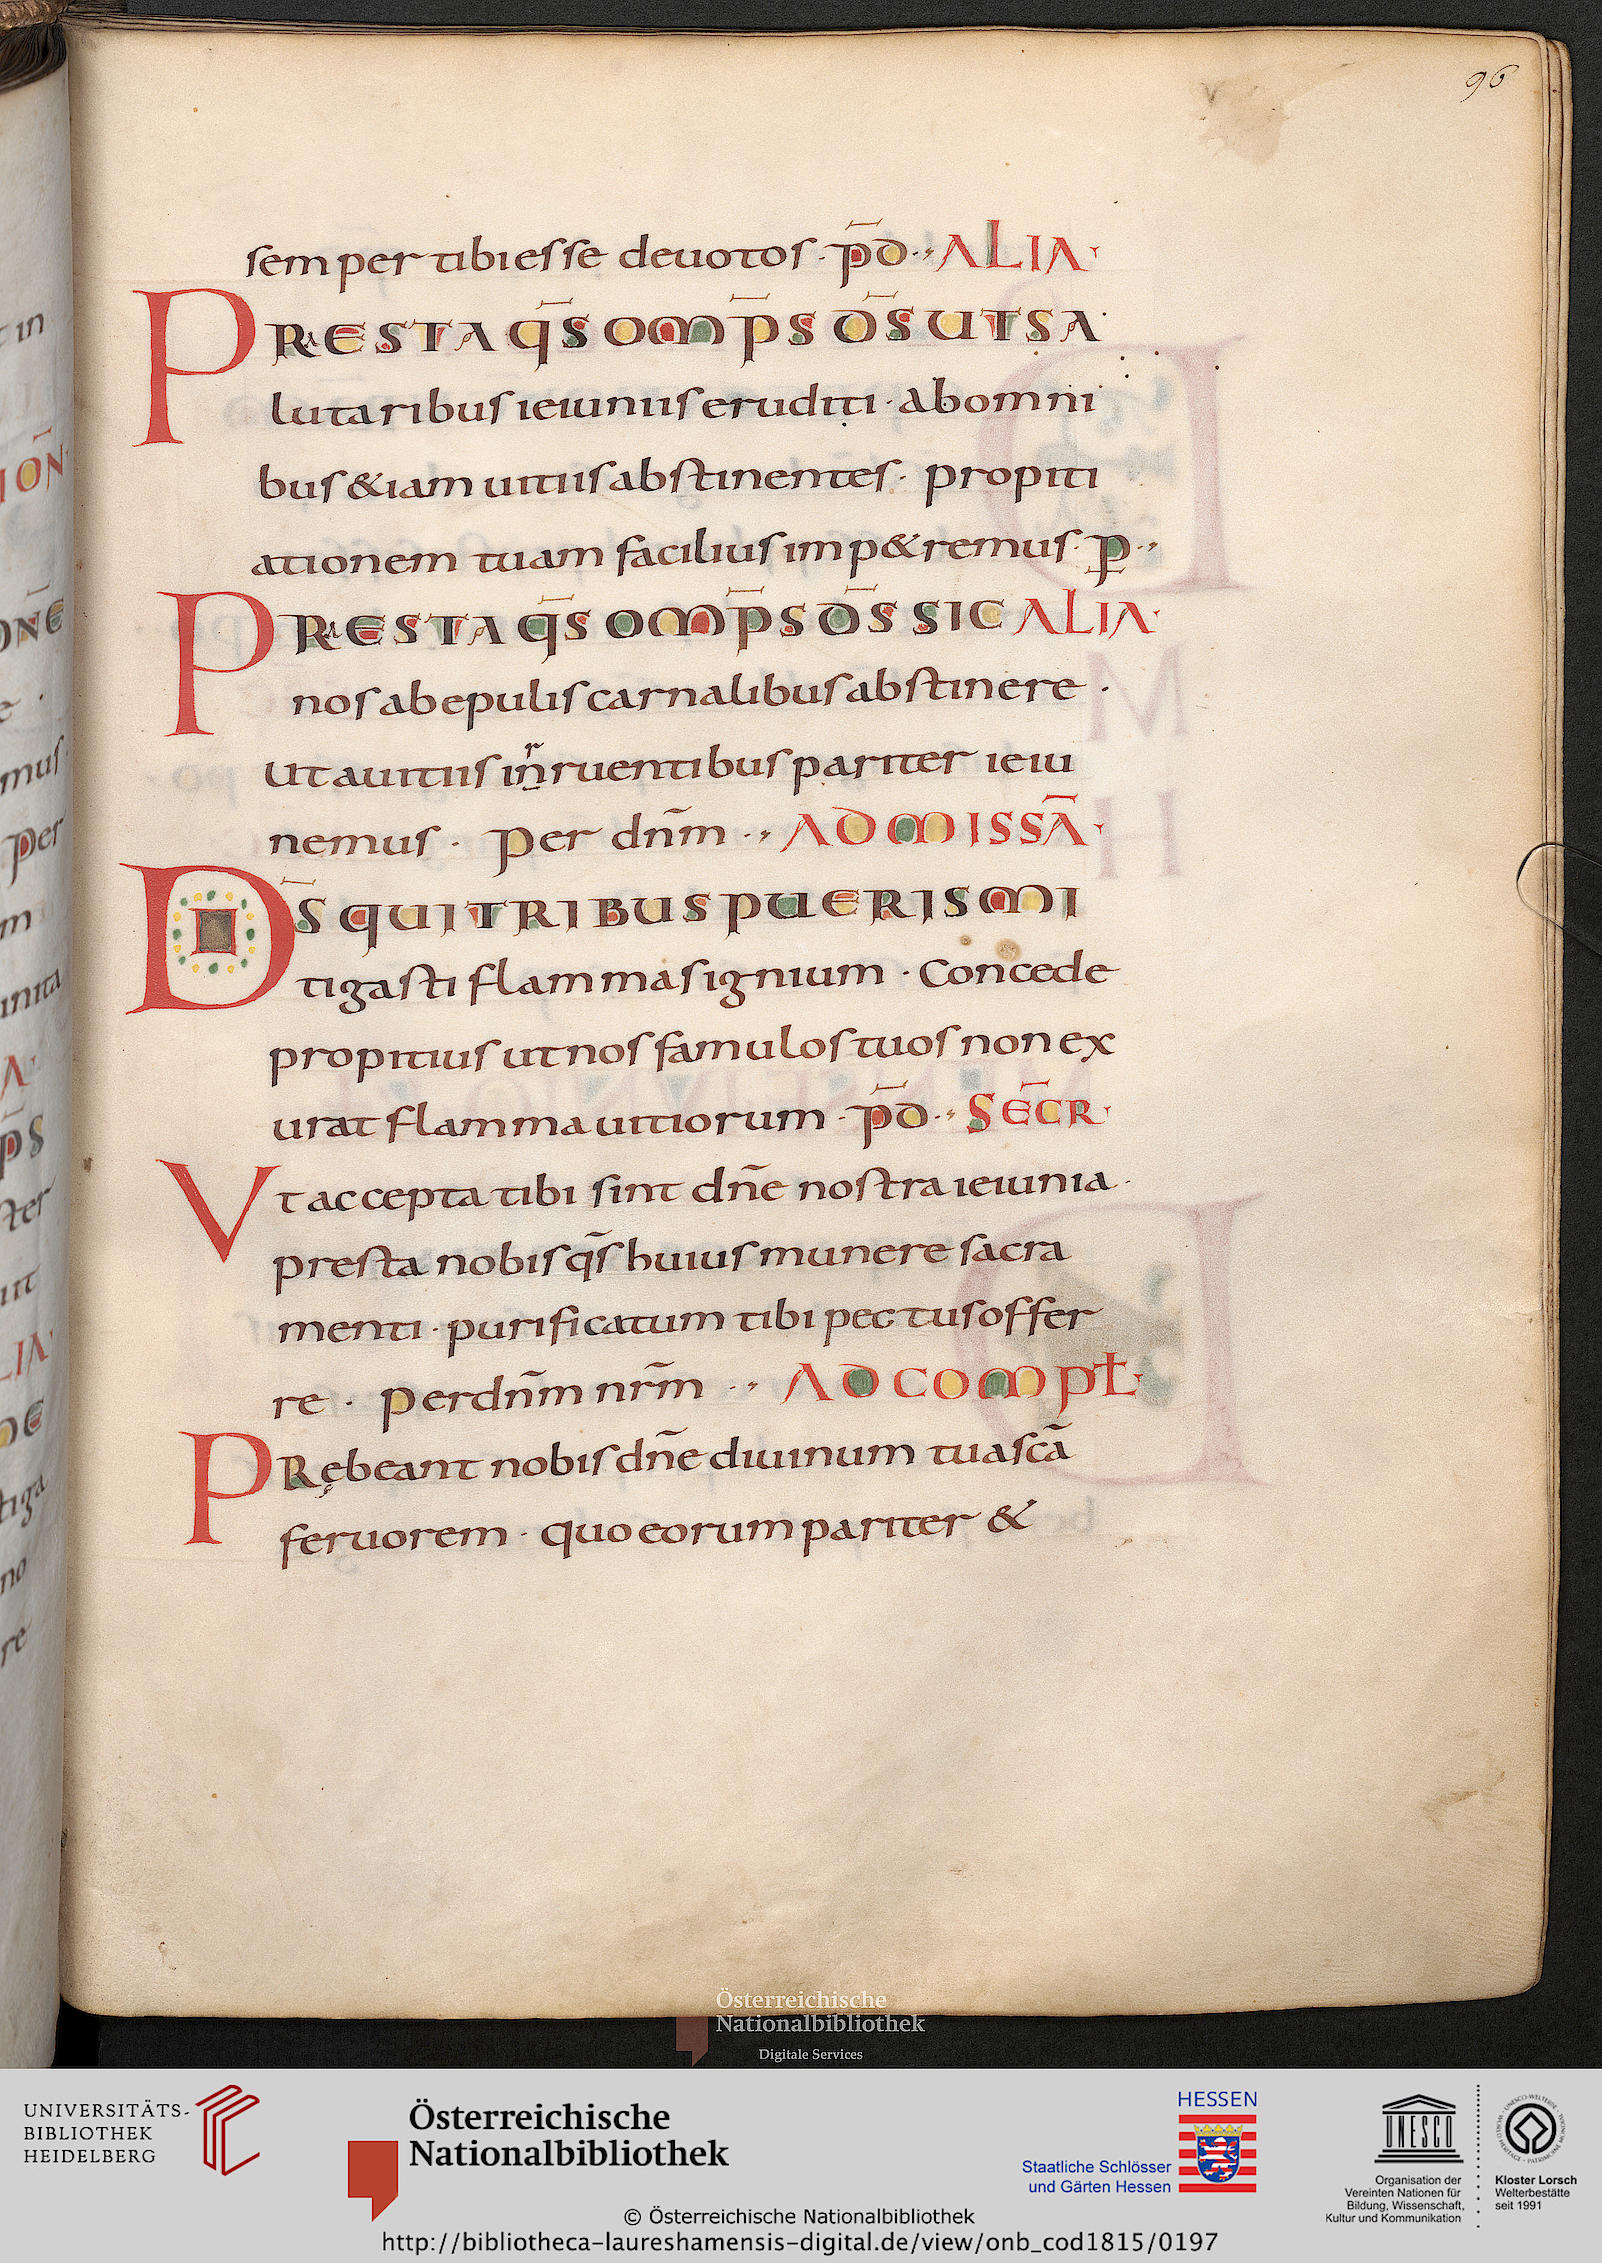 96
semper tibi esse deuotos · p̄d ·, ALIA·
PRESTA q̄S OMP̄S D̄S UT SA
lutaribus ieiuniis eruditi · ab omni
bus & iam uitiis abstinentes · propiti
ationem tuam facilius imp&remus · ꝑ ·,
PRESTA q̄S OMP̄S D̄S SIC ALIA·
nos ab epulis carnalibus abstinere ·
Ut a uitiis inruentibus pariter ieiu
nemus · per dn̄m ·, AD MISSĀ·
D̄S QUI TRIBUS PUERIS MI
tigasti flammas ignium · Concede
propitius ut nos famulos tuos non ex
urat flamma uitiorum · p̄d ·, SEC̄R·
Vt accepta tibi sint dn̄e nostra ieiunia ·
presta nobis q̄s huius munere sacra
menti · purificatum tibi pectus offer
re · per dn̄m nr̄m ·, AD COMPL̄·
PRębeant nobis dn̄e diuinum tua scā
feruorem · quo eorum pariter &
Österreichische
Nationalbibliothek
Digitale Services
UNIVERSITÄTS-
BIBLIOTHEK
HEIDELBERG
Österreichische
Nationalbibliothek
HESSEN
Staatliche Schlösser
und Gärten Hessen
UNESCO
Organisation der
Vereinten Nationen für
Bildung, Wissenschaft,
Kultur und Kommunikation
Kloster Lorsch
Welterbestätte
seit 1991
© Österreichische Nationalbibliothek
http://bibliotheca-laureshamensis-digital.de/view/onb_cod1815/0197